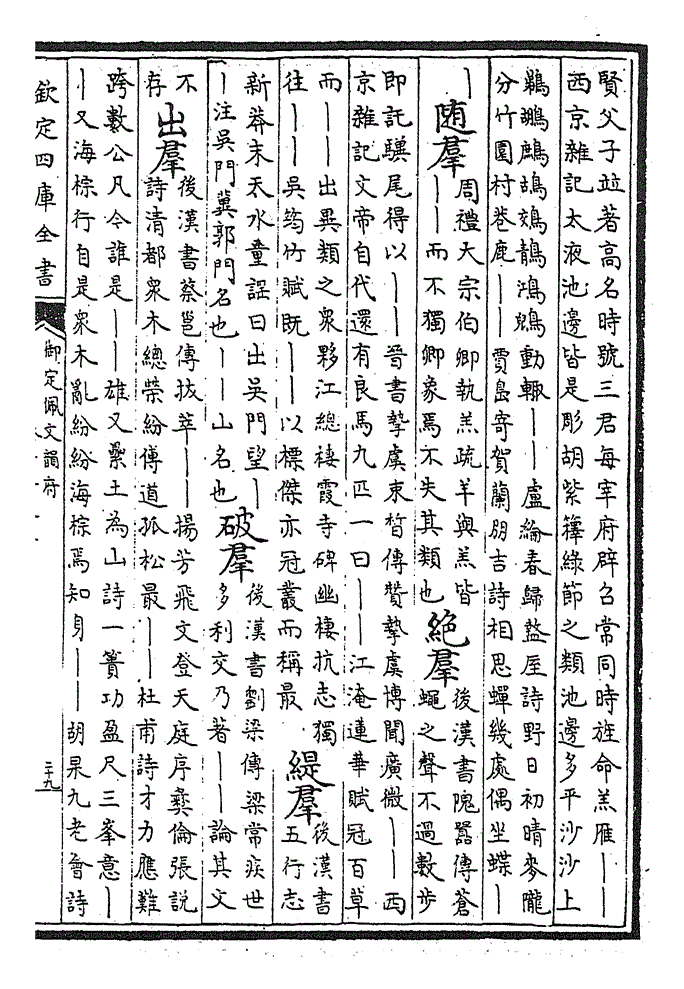 賢父子竝著高名時號三君每宰府辟召常同時旌命羔雁――
西京雜記太夜池邊皆是彫胡紫籜綠節之類池邊多平沙沙上
鵜鶘鷓鴣鵁鶄鴻鶂動輒――盧綸春歸盩厔詩野日初晴麥隴
分竹園村巷鹿――賈島寄賀蘭朋吉詩相思蟬幾處偶坐蝶―
―
隨羣
周禮大宗伯卿執羔疏羊與羔皆
――而不獨卿象焉不失其類也
絕羣
後漢書隗囂傳蒼
蠅之聲不過數步
即託驥尾得以――晉書摯虞束皙傳贊摯虞博聞廣微――西
京雜記文帝自代還有良馬九匹一曰――江淹蓮華賦冠百草
而――出異類之衆夥江總棲霞寺碑幽棲抗志獨
往――吳筠竹賦既――以標傑亦冠叢而稱最
緹羣
後漢書
五行志
新莽末天水童謡曰出吳門望―
―注吳門冀郭門名也――山名也
破羣
後漢書劉梁傳梁常疾世
多利交乃著――論其文
不
存
出羣
後漢書蔡邕傳拔萃――揚芳飛文登天庭序彝倫張說
詩清都衆木總榮紛傳道孤松最――杜甫詩才力應難
跨數公凡今誰是――雄又纍土為山詩一簣功盈尺三峯意―
―又海棕行自是衆木亂紛紛海棕焉知身――胡杲九老會詩
欽定四庫全書
御定佩文韻府
二十九